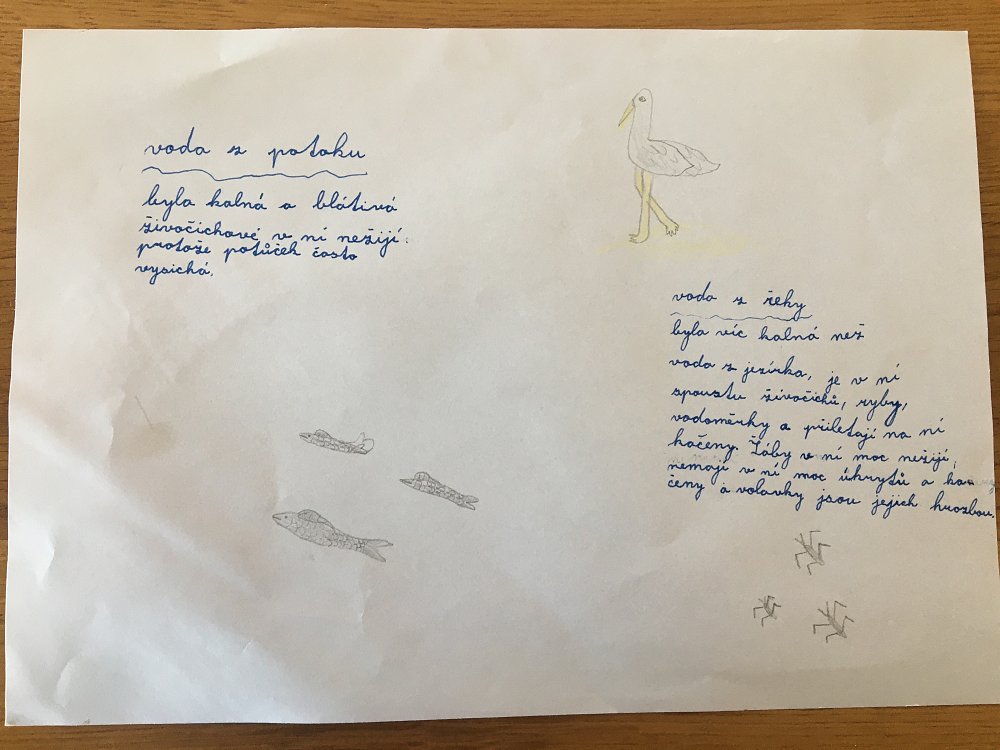 voda z potoku
byla kalná a blátivá
živočichové v ní nežijí.
protože potůček často
vysichá.
voda z řeky
byla víc kalná než
voda z jezírka, je v ní
spoustu živočichů, ryby,
vodoměrky a přiletají na ní
kačeny. Žáby v ní moc nežijí,
nemají v ní moc úkrytů a ka
čeny a volavky jsou jejich hrozbou.